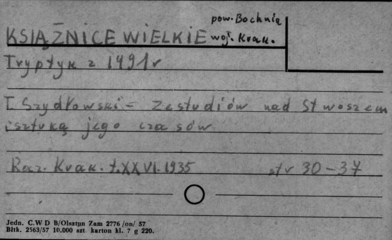 KSIĄŻNICE WIELKIE pow. Bochnia woj. Krak.
Tryptyk z 1491 r
T Szydłowski - Ze studiów nad Stwoszem
i sztuką jego czasów
Roz. Krak. t. XXVI. 1935 str 30-37
Jedn. C.W D B/Olsztyn Zam 2776 /on/ 57
Bltk. 2163/57 10,000 szt karton kl. 7 g 220.